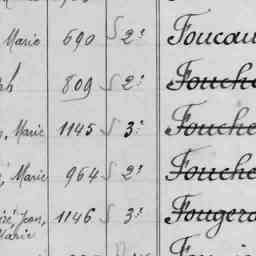 Marie 690 S 2e Foucau
ph 809 S 2e Fouche
, Marie 1145 S 3e Fouche
, Marie 964 S 2e Fouche
Jean, 1146 S 3e Fougera
Marie